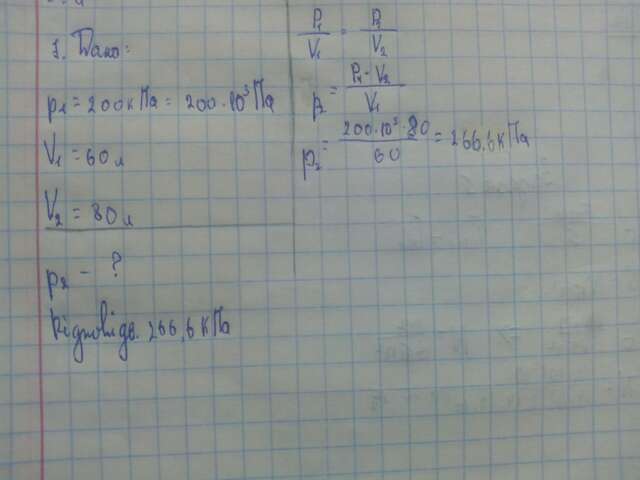 1. Дано:
p₁ = 200 кПа = 200·10³ Па
V₁ = 60 л
V₂ = 80 л
p₂ - ?
Відповідь. 266,6 кПа
P₁/V₁ = P₁/V₂
p₂ = P₁·V₂/V₁
p₂ = 200·10³·80/60 = 266,6 кПа